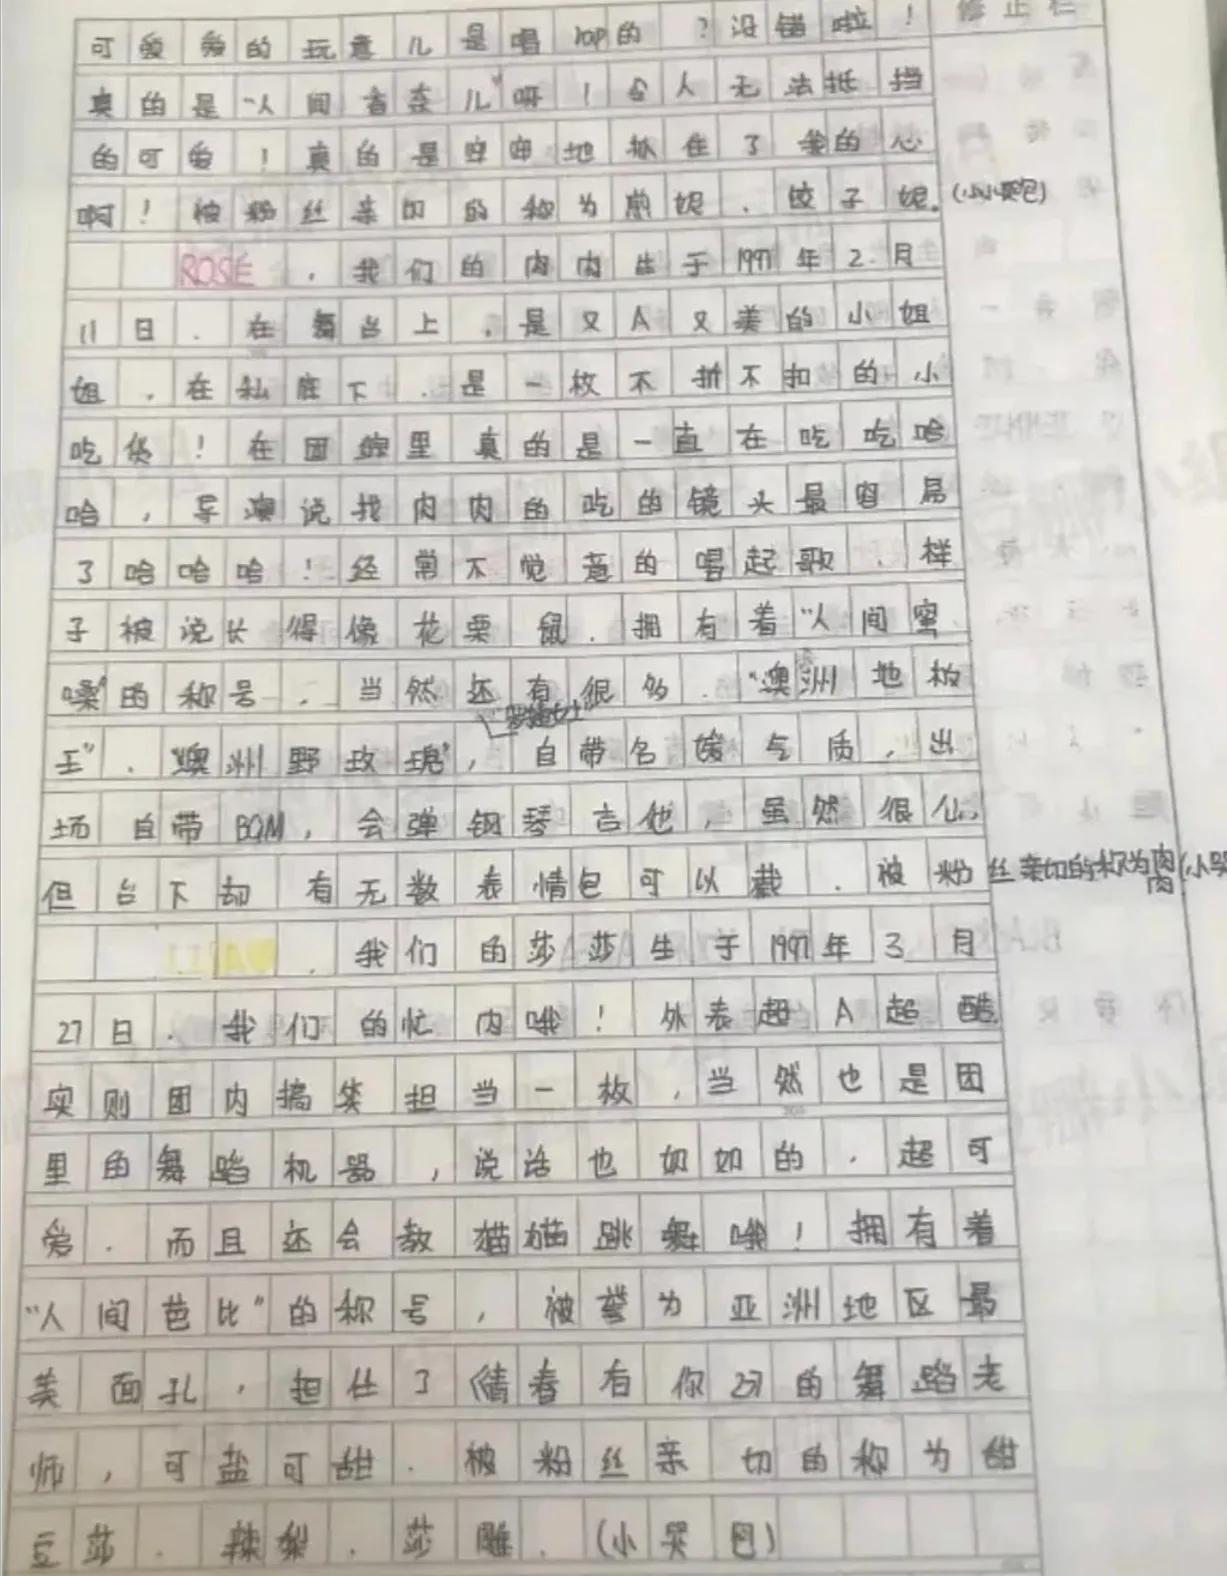 修正栏
可爱爱的玩意儿是唱rap的？没错啦！
真的是“人间香奈儿”呀！令人无法抵挡
的可爱！真的是牢牢地抓住了我的心
啊！被粉丝亲切的称为煎妮．饺子妮．（小小哭包）
ROSÉ，我们的肉肉生于1997年2月
11日．在舞台上，是又A又美的小姐
姐，在私底下．是一枚不折不扣的小
吃货！在团综里真的是一直在吃吃哈
哈，导演说找肉肉的吃的镜头最容易
了哈哈哈！经常不觉意的唱起歌．样
子被说长得像花栗鼠．拥有着“人间蜜
嗓”的称号．当然还有很多．“澳洲地板
王”．“澳洲野玫瑰”，自带名媛气质，出
场自带BGM，会弹钢琴吉他，虽然很仙，
但台下却有无数表情包可以截．被粉丝亲切的称为肉肉（小哭
，我们的莎莎生于1997年3月
27日．我们的忙内哦！外表超A超酷
实则团内搞笑担当一枚，当然也是团
里的舞蹈机器，说话也奶奶的．超可
爱．而且还会教猫猫跳舞哦！拥有着
“人间芭比”的称号，被誉为亚洲地区最
美面孔，担任了《青春有你2》的舞蹈老
师，可盐可甜．被粉丝亲切的称为甜
豆莎．辣梨．莎雕．（小哭包）